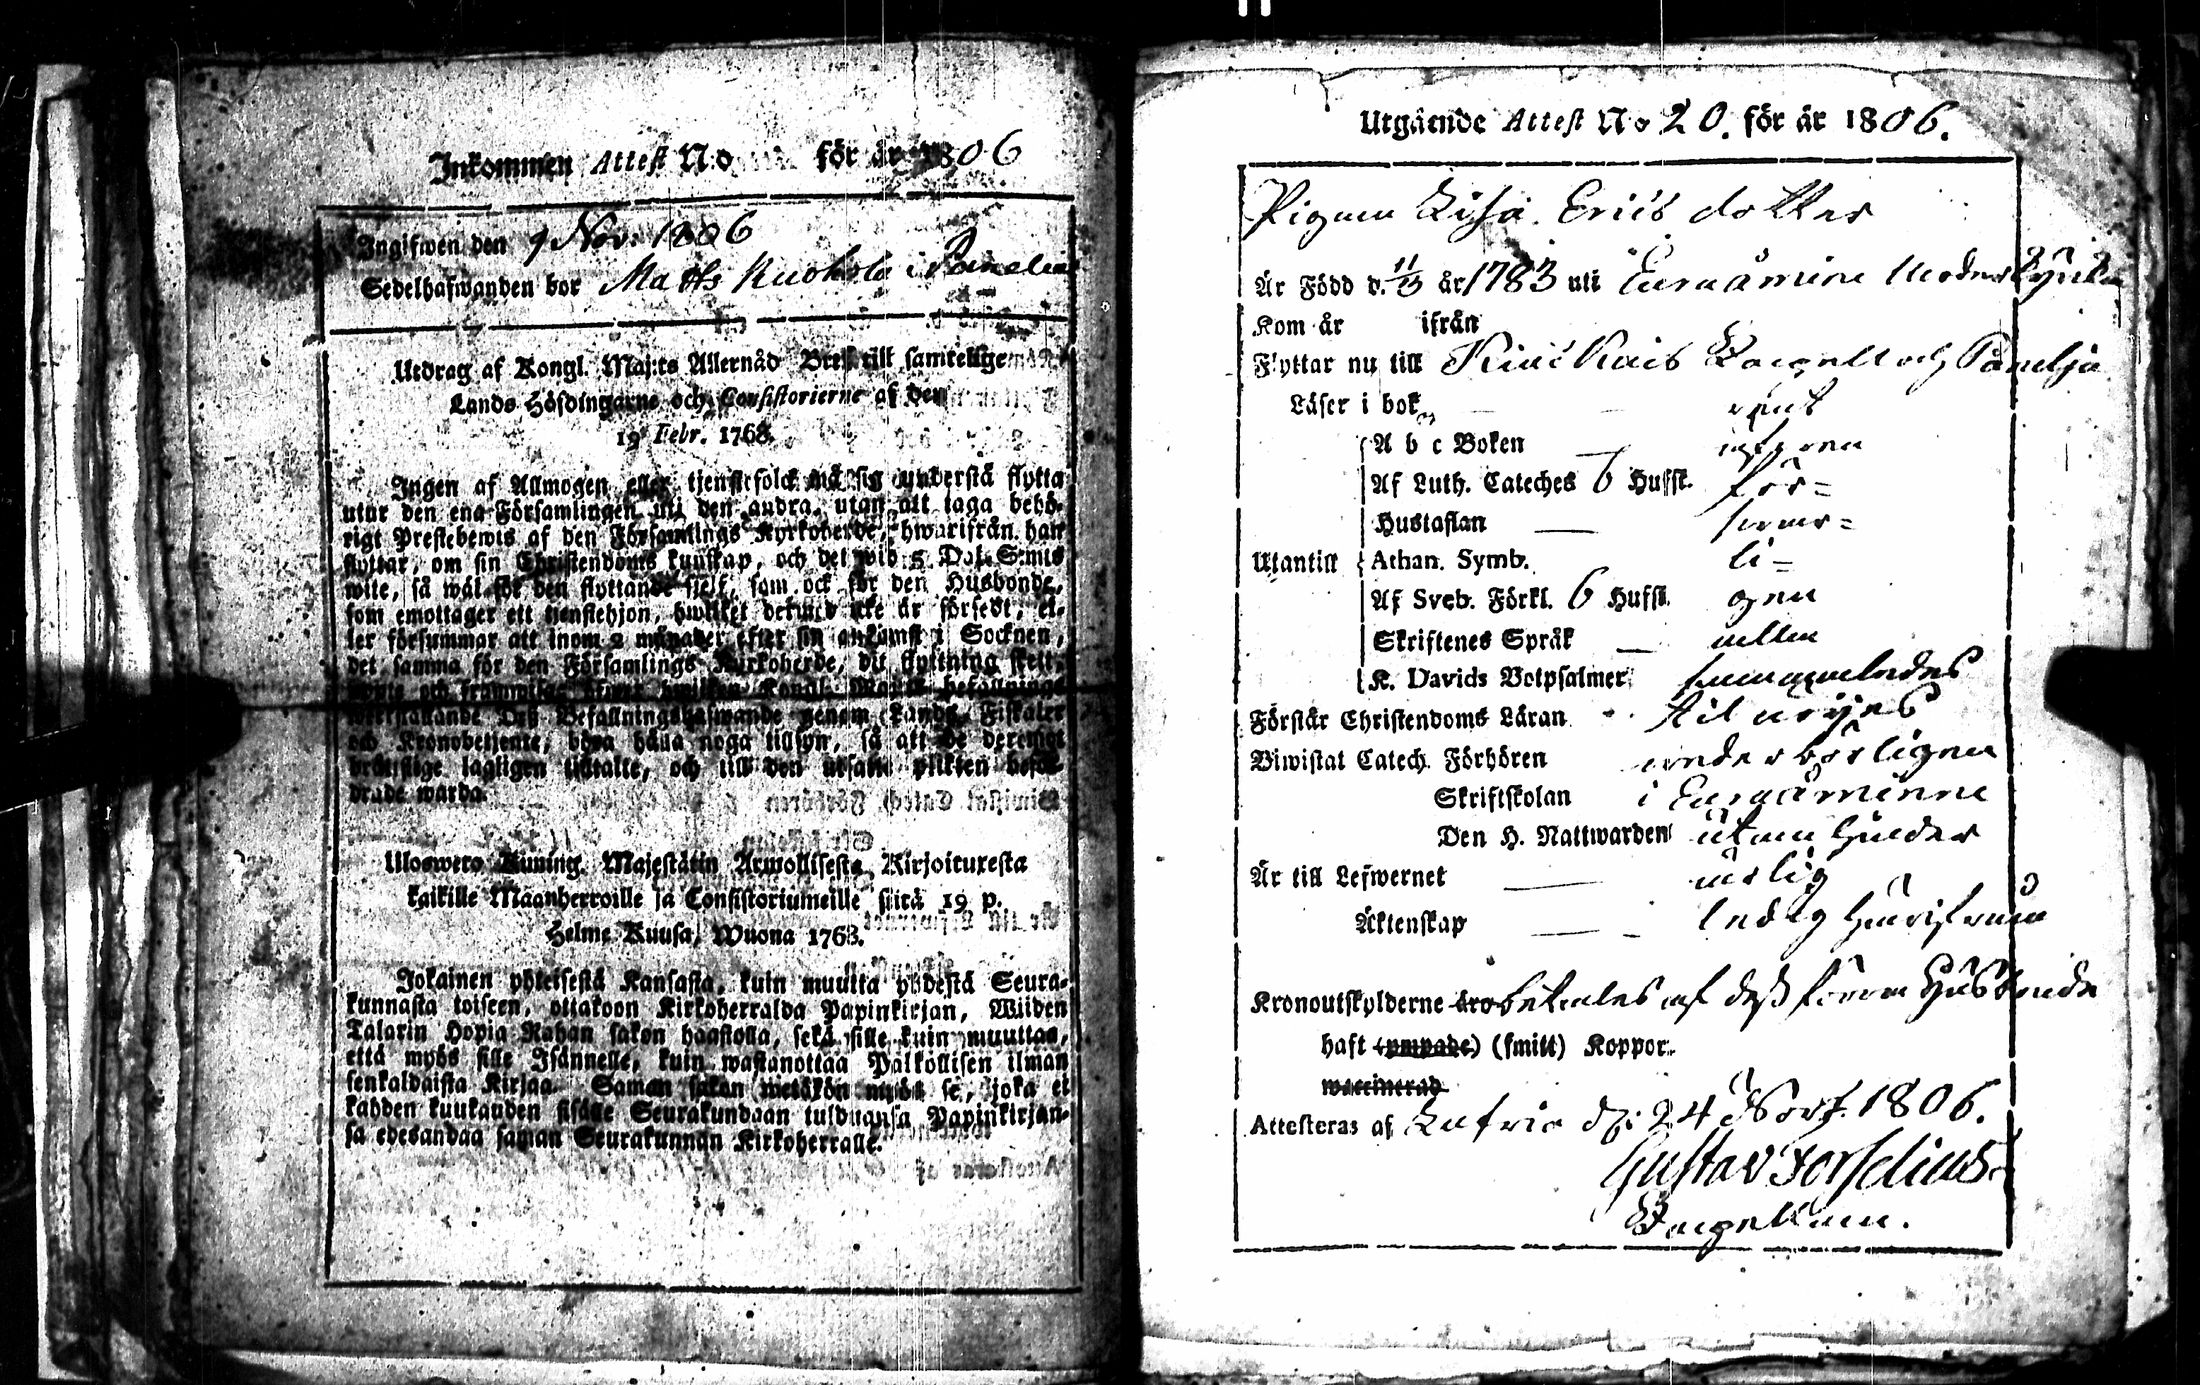 Inkommen Attest N:o för år 1806
Ingifwen den 9 Nov: 1806
Sedelhafwanden bor Matts Ruohola i Panelia
Utdrag af Kongl. Maj:ts Allernåd Bref till samtelige
Lands Höfdingarne och Consistorierne af den
19 Febr. 1768.
Ingen af Allmogen eller tjenstefolck må sig understå flytta
utur den ena Församlingen till den andra, utan att taga behö-
rigt Prestebewis af den Församlings Kyrkoherde, hwarifrån han
flyttar, om sin Christendoms kunskap, och det wid 5 Dal. S:mts
wite, så wäl för den flyttande sjelf, som ock för den Husbonde,
som emottager ett tjenstehjon, hwilket dermed icke är försedt, el-
ler försummar att inom 2 månader efter sin ankomst i Socknen,
det samma för den Församlings Kyrkoherde, dit flyttning skett,
befallnings
werkställande Deß Befallningshafwande genom Lands Fiskaler
och Kronobetjente, böra hålla noga tillsyn, så att de deremot
brottslige lagligen tilltalte, och till den utsatte plikten befor-
drade warda.
Ulosweto Kuning. Majestätin Armollisesta Kirjoituxesta
kaikille Maanherroille ja Consistoriumeille siitä 19 p.
Helme Kuusa, Wuona 1768.
Jokainen yhteisestä Kansasta, kuin muutta yhdestä Seura-
kunnasta toiseen, ottakoon Kirkoherralda Papinkirjan, Wiiden
Talarin Hopia Rahan sakon haastolla, sekä sille kuin muuttaa,
että myös sille Isännelle, kuin wastanottaa Palkollisen ilman
senkaldaista Kirjaa. Saman sakon wetäkön myös se, joka ei
kahden kuukauden sisälle Seurakundaan tulduansa Papinkirjan-
sa edesandaa saman Seurakunnan Kirkoherralle.
Utgående Attest No 20. för år 1806.
Pigan Lisa Erics dotter
Är Född d. 11/3 år 1783 uti Euraåminne Moderkyrka
Kom år ifrån
Flyttar nu till Kiukais Capell och Panelja
Läser i bok rent
A b c Boken
Af Luth. Cateches 6 Hufst. för=
Hustaflan samr=
Utantill Athan. Symb. li=
Af Sveb. Förkl. 6 Hufst. gen
Skriftenes Språk
K. Davids Botpsalmer sammaledes
Förstår Christendoms Läran til nöjes
Biwistat Catech. Förhören
Skriftskolan i Euraåminne
Den H. Nattwarden utan hinder
Är till Lefwernet ärlig
Äktenskap ledig
Kronoutskylderne äro betalas af deß förra Husbonde
haft (ympade) (smitt) Koppor.
waccinerad
Attesteras af Lutvia d: 24 Octob. 1806.
Gustav Forselius
Capellan.